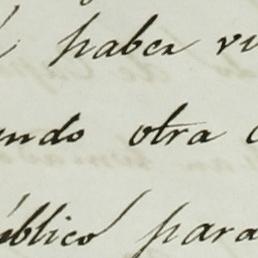 haber vi
ando otra
úblico para